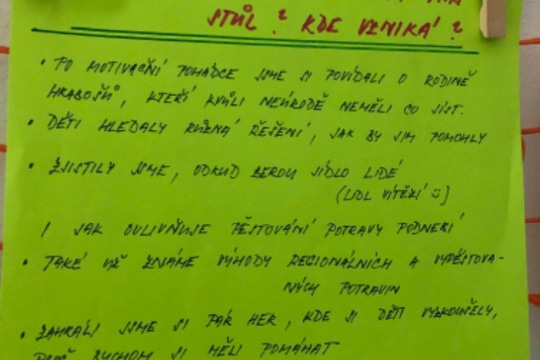 STŮL? KDE VZNIKÁ?
• PO MOTIVAČNÍ POHÁDCE JSME SI POVÍDALI O RODINĚ
HRABOŠŮ, KTEŘÍ KVŮLI NEÚRODĚ NEMĚLI CO JÍST.
• DĚTI HLEDALY RŮZNÁ ŘEŠENÍ, JAK BY JIM POMOHLY
• ZJISTILY JSME, ODKUD BEROU JÍDLO LIDÉ
(LIDL VÍTĚZÍ ☺)
I JAK OVLIVŇUJE PĚSTOVÁNÍ POTRAVY PODNEBÍ
• TAKÉ UŽ ZNÁME VÝHODY REGIONÁLNÍCH A VYPĚSTOVA-
NÝCH POTRAVIN
• ZAHRÁLI JSME SI PÁR HER, KDE SI DĚTI VYZKOUŠELY,
BYCHOM SI MĚLI POMÁHAT